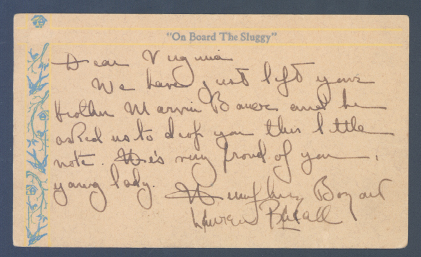 "On Board The Sluggy"
Dear Virginia
We have just left your
brother Marvin Bauer and he
asked us to drop you this little
note. He's very proud of you,
young lady.
Humphrey Bogart
Lauren Bacall